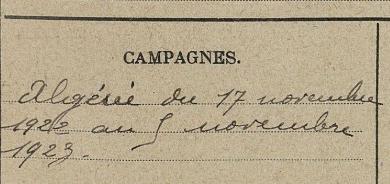 CAMPAGNES.
Algérie du 17 novembre
1922 au 5 novembre
1923.